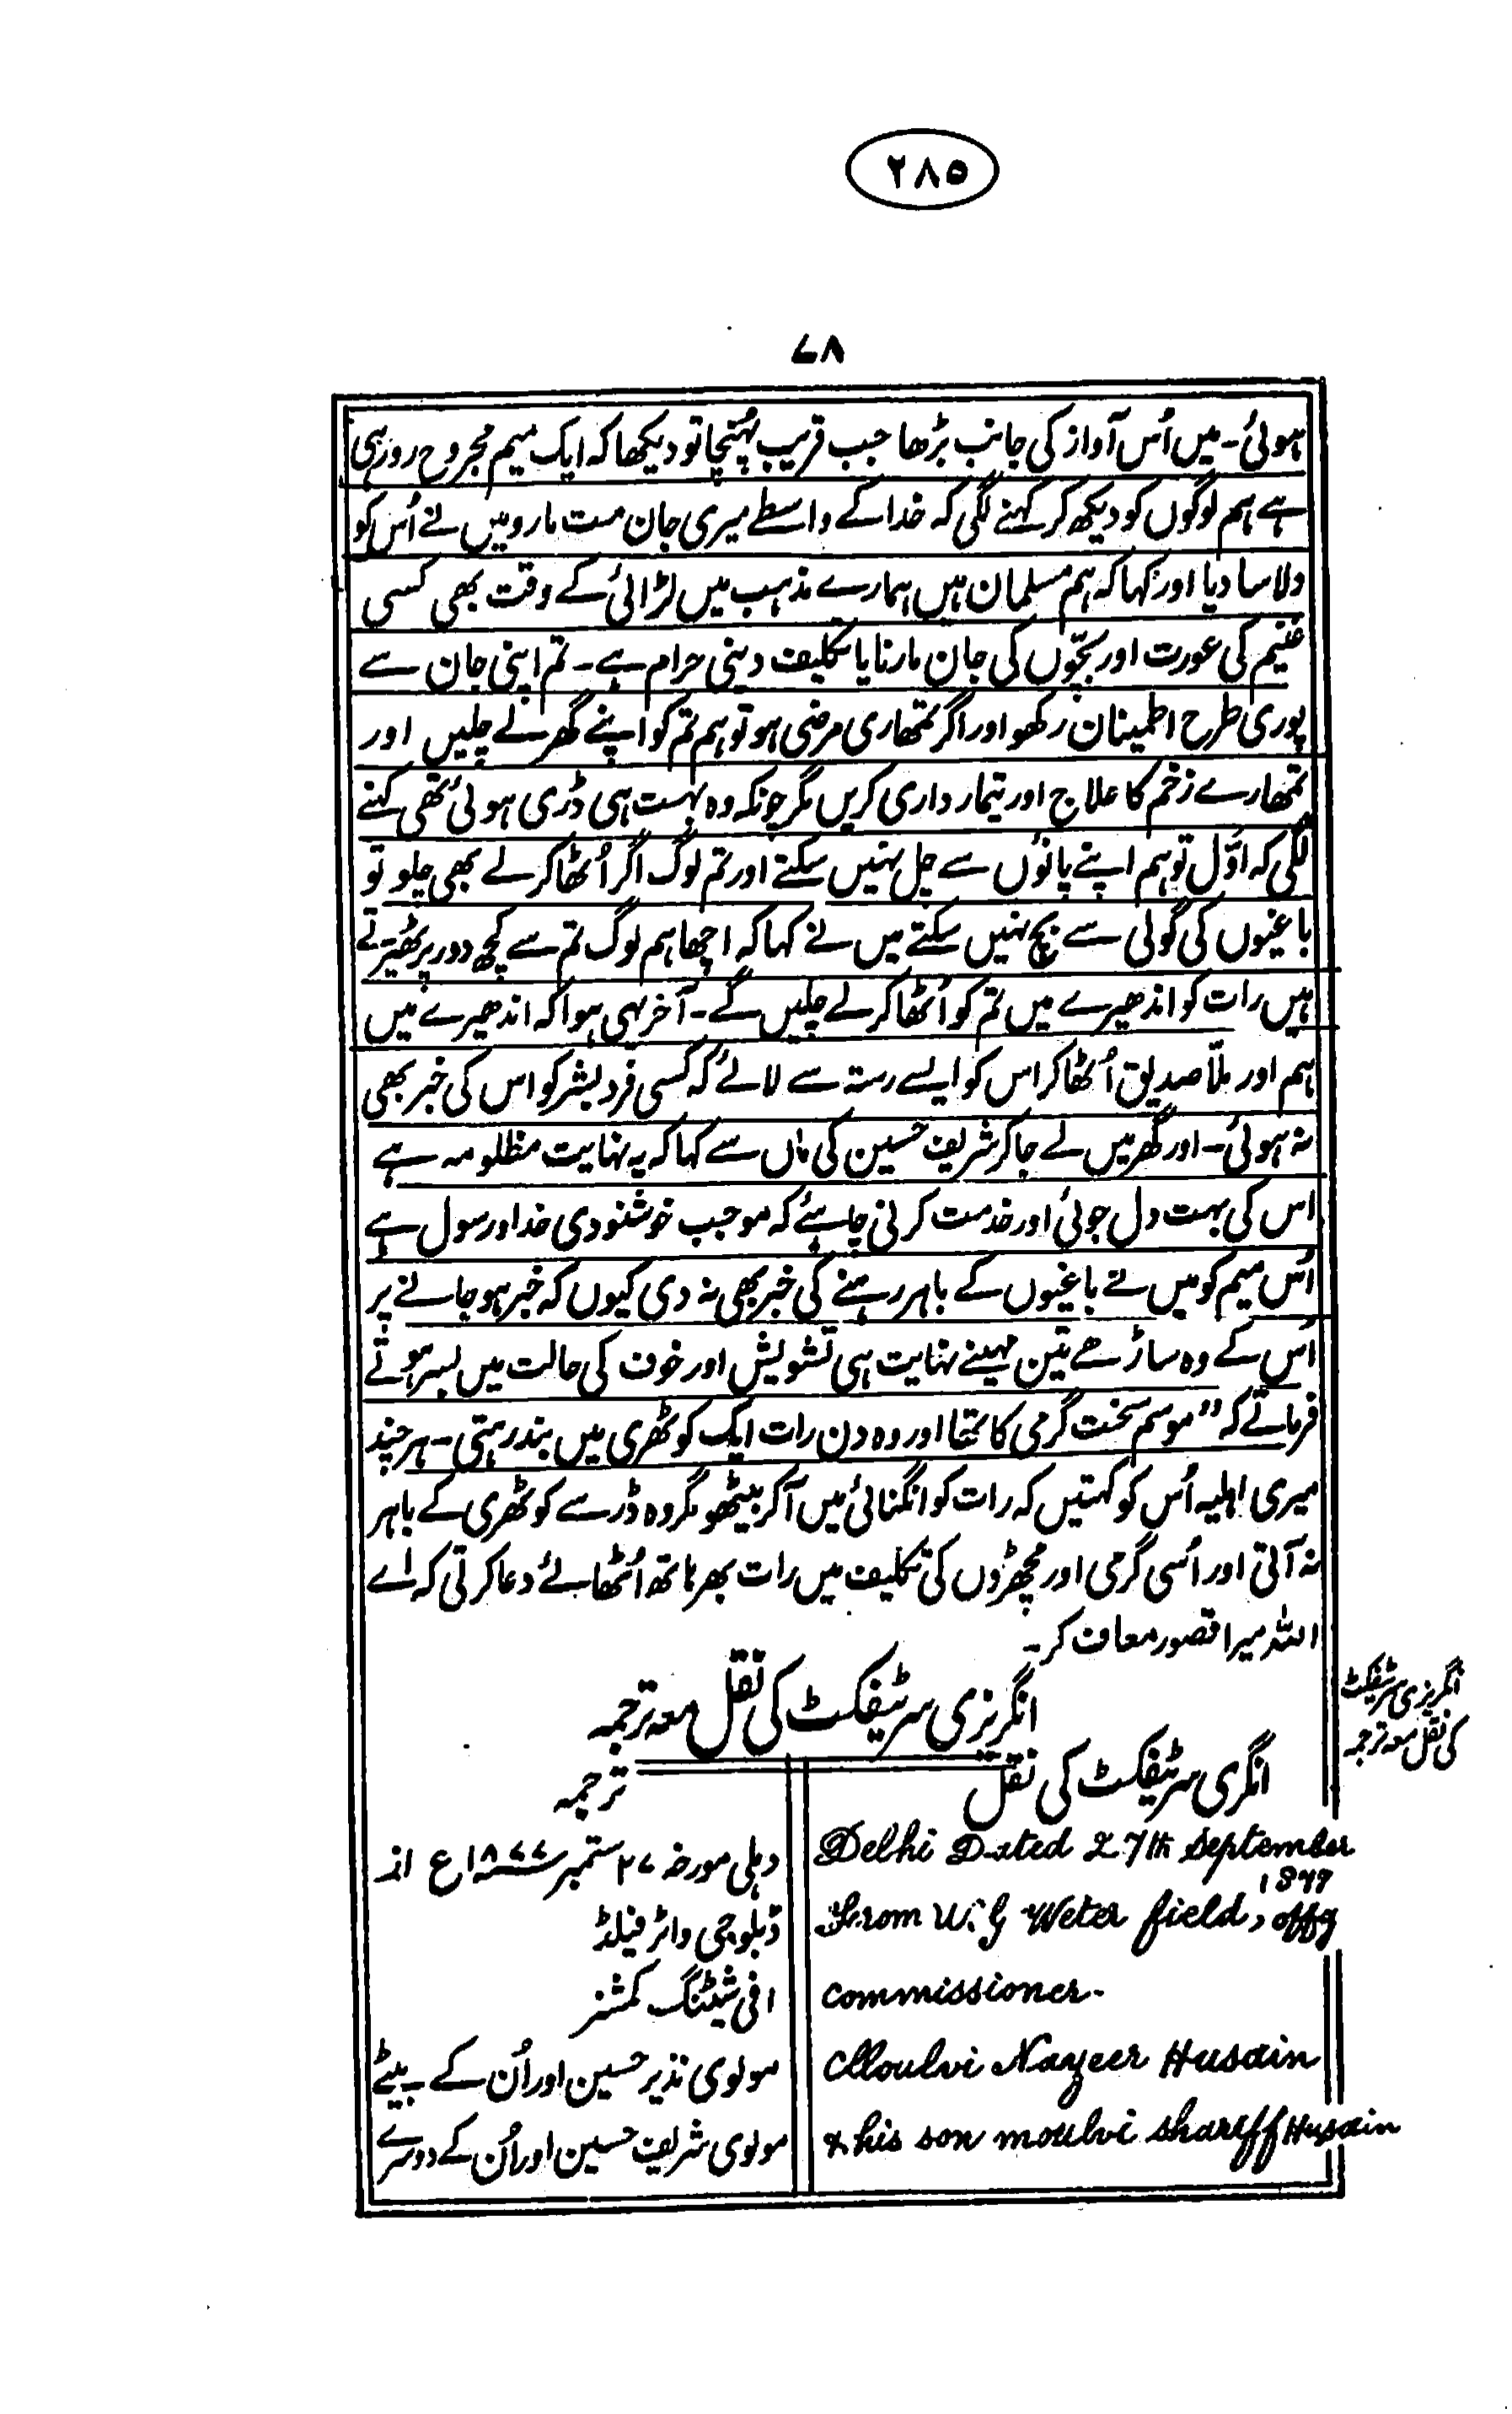 ۲۸۵
۷۸
ہوئی۔ میں اُس آواز کی جانب بڑھا جب قریب پہُنچا تو دیکھا کہ ایک میم مجروح رو رہی
ہے ہم لوگوں کو دیکھ کر کہنے لگی کہ خدا کے واسطے میری جان مت مارو میں نے اُس کو
دلاسا دیا اور کہا کہ ہم مسلمان ہیں ہمارے مذہب میں لڑائی کے وقت بھی کسی
غنیم کی عورت اور بچّوں کی جان مارنا یا تکلیف دینی حرام ہے۔ تم اپنی جان سے
پوری طرح اطمینان رکھو اور اگر تمھاری مرضی ہو تو ہم تم کو اپنے گھر لے چلیں اور
تمھارے زخم کا علاج اور تیمارداری کریں مگر چونکہ وہ بہت ہی ڈری ہوئی تھی کہنے
لگی کہ اوّل تو ہم اپنے پانوٗں سے چل نہیں سکتے اور تم لوگ اگر اُٹھا کر لے بھی چلو تو
باغیوں کی گولی سے بچ نہیں سکتے میں نے کہا کہ اچھا ہم لوگ تم سے کچھ دور پر ٹھیرتے
ہیں رات کو اندھیرے میں تم کو اُٹھا کر لے چلیں گے۔ آخر یہی ہوا کہ اندھیرے میں
ہم اور ملّا صدیق اُٹھا کر اس کو ایسے رستہ سے لائے کہ کسی فرد بشر کو اس کی خبر بھی
نہ ہوئی۔ اور گھر میں لے جا کر شریف حسین کی ماں سے کہا کہ یہ نہایت مظلومہ ہے
اس کی بہت دل جوئی اور خدمت کرنی چاہئے کہ موجب خوشنودی خدا و رسول ہے
اُس میم کو میں نے باغیوں کے باہر رہنے کی خبر بھی نہ دی کیوں کہ خبر ہو جانے پر
اُس کے وہ ساڑھے تین مہینے نہایت ہی تشویش اور خوف کی حالت میں بسر ہوتے
فرماتے کہ ”موسم سخت گرمی کا تھا اور وہ دن رات ایک کوٹھری میں بند رہتی۔ ہر چند
میری اہلیہ اُس کو کہتیں کہ رات کو انگنائی میں آ کر بیٹھو مگر وہ ڈر سے کوٹھری کے باہر
نہ آتی اور اُسی گرمی اور مچھڑوں کی تکلیف میں رات بھر ہاتھ اُٹھائے دعا کرتی کہ اے
اللہ میرا قصور معاف کر۔
انگریزی سرٹیفکٹ کی نقل معہ ترجمہ
انگریزی سرٹیفکٹ
کی نقل معہ ترجمہ
انگری سرٹیفکٹ کی نقل
Delhi Dated 27th September
1877
From W. G Weter field, offg
commissioner.
Moulvi Nazeer Husain
& his son moulvi shareff Husain
ترجمہ
دہلی مورخہ ۲۷ ستمبر ۱۸۷۷ع از
ڈبلو جی واٹر فیلڈ
افی شیٹنگ کمشنر
مولوی نذیر حسین اور اُن کے بیٹے
مولوی شریف حسین اور اُن کے دوسرے